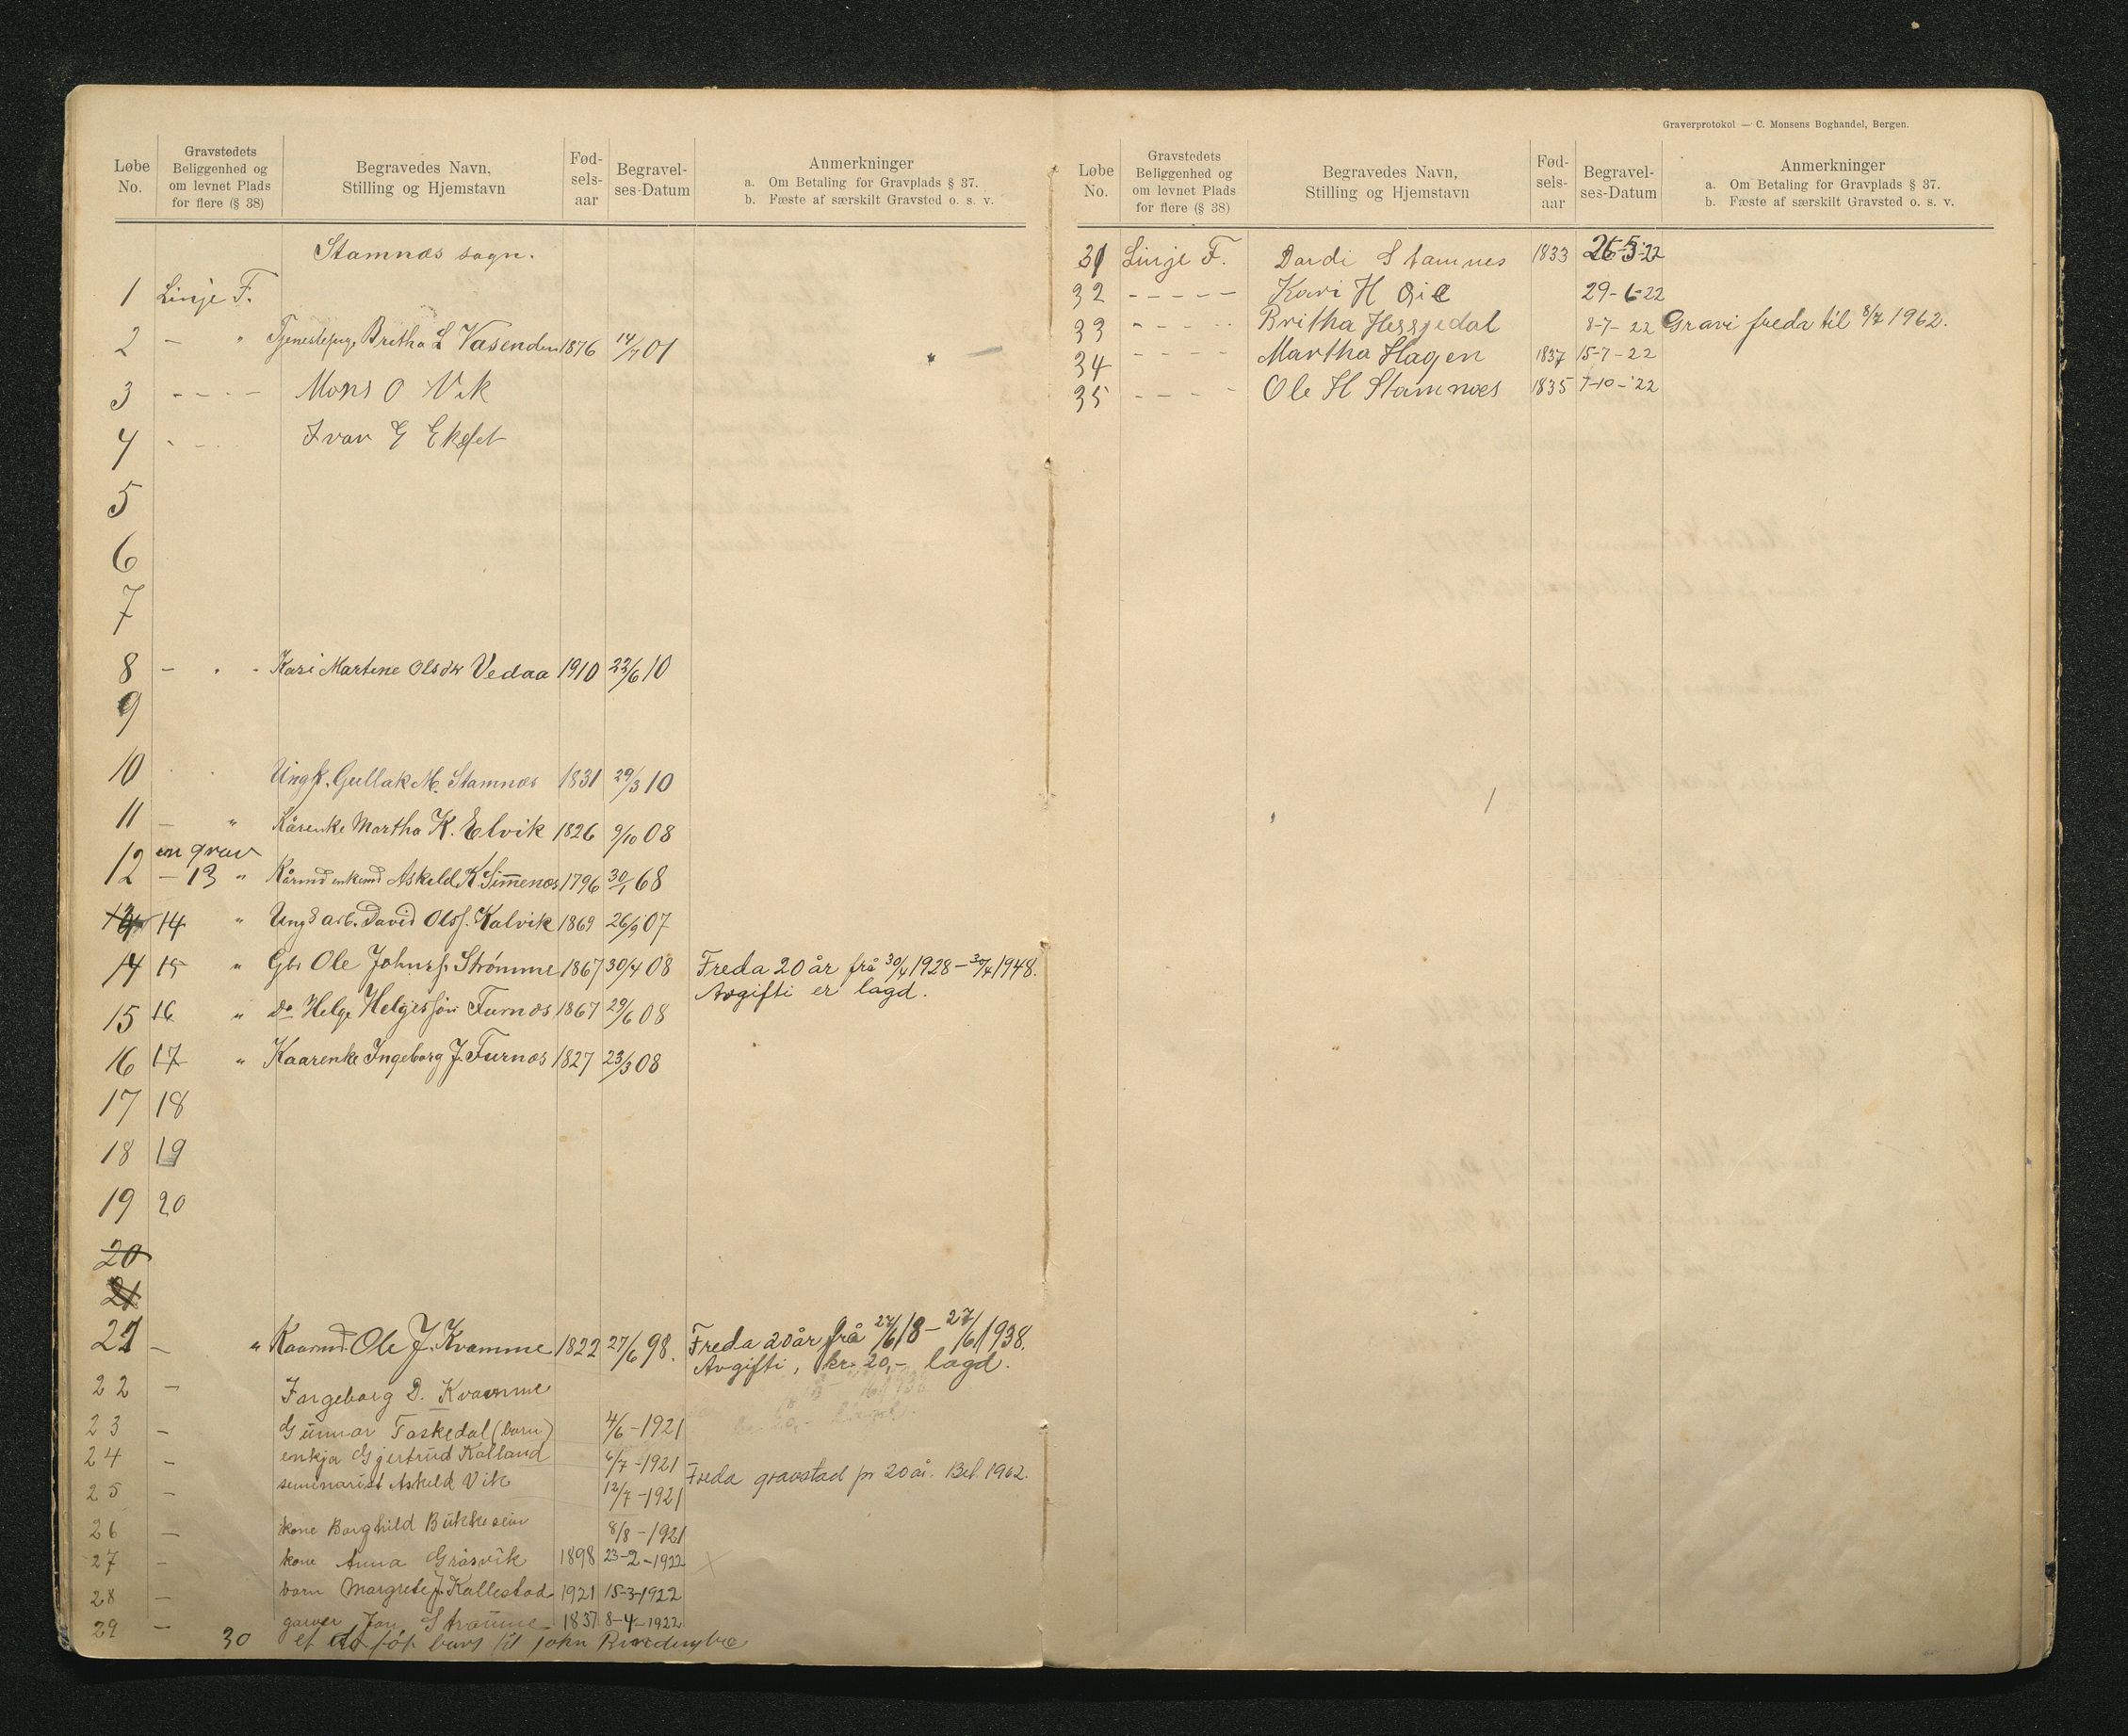 Løbe No. Gravstedets Beliggenhed og om levnet Plads for flere (§ 38) Begravedes Navn, Stilling og Hjemstavn Fød-sels-aar Begravel-ses-Datum Anmerkninger
a. Om Betaling for Gravplads § 37.
b. Fæste af særskilt Gravsted o. s. v.
Stamnæs sogn.
1 Linje F.
2 — " Britha L Vasenden 1876 14/7 01
3 - - - - Mons O Vik
4 - - - Ivar G Ekset
5
6
7
8 - - - Kari Martine Olsdtr Vedaa 1910 22/6 10
9
10 Ungk. Gullak M. Stamnæs 1831 29/3 10
11 — " Kårenke Martha K. Elvik 1826 9/10 08
en grav
12 — 13 " Kårmd enkemd Askeld K. Simmenæs 1796 30/1 68
14 " Ung arb. David Olss. Kalvik 1869 26/9 07
14 15 " Gbr Ole Johnss. Strømme 1867 30/4 08 Freda 20 år frå 30/4 1928 – 30/4 1948.
Avgifti er lagd.
15 16 " Do Helge Helgessøn Furnæs 1867 29/6 08
16 17 " Kaarenke Ingeborg J. Furnæs 1827 23/3 08
17 18
18 19
19 20
20
21
21 — " Kaarmd. Ole J. Kvamme 1822 27/6 98. Freda 20 år frå 27/6 18 – 27/6 1938.
Avgifti, kr. 20,- lagd.
22 — Ingeborg D. Kvamme
23 — Gunnar Taskedal (barn) 4/6 - 1921
24 — enkja Gjertrud Kalland 6/7 - 1921
25 — seminarist Askeld Vik 12/7 - 1921 Freda gravstad pr 20 år. Bet. 1962.
26 — kone Borghild 8/8 - 1921
27 — kone Anna Gråsvik 1898 23-2-1922
28 — barn Margrete J. Kallestad 1921 15-3-1922
29 — garver Jon Straume 1837 8-4-1922
30 et født barn til John
Graverprotokol — C. Monsens Boghandel, Bergen.
Løbe No. Gravstedets Beliggenhed og om levnet Plads for flere (§ 38) Begravedes Navn, Stilling og Hjemstavn Fød-sels-aar Begravel-ses-Datum Anmerkninger
a. Om Betaling for Gravplads § 37.
b. Fæste af særskilt Gravsted o. s. v.
31 Linje F. Dardi Stamnes 1833 26-5-22
32 - - - - - Kari H 29-6-22
33 - - - - Britha Hessjedal 8-7-22 Gravi freda til 8/7 1962.
34 - - - - Martha Hagen 1837 15-7-22
35 - - - - Ole H Stamnæs 1835 7-10-22